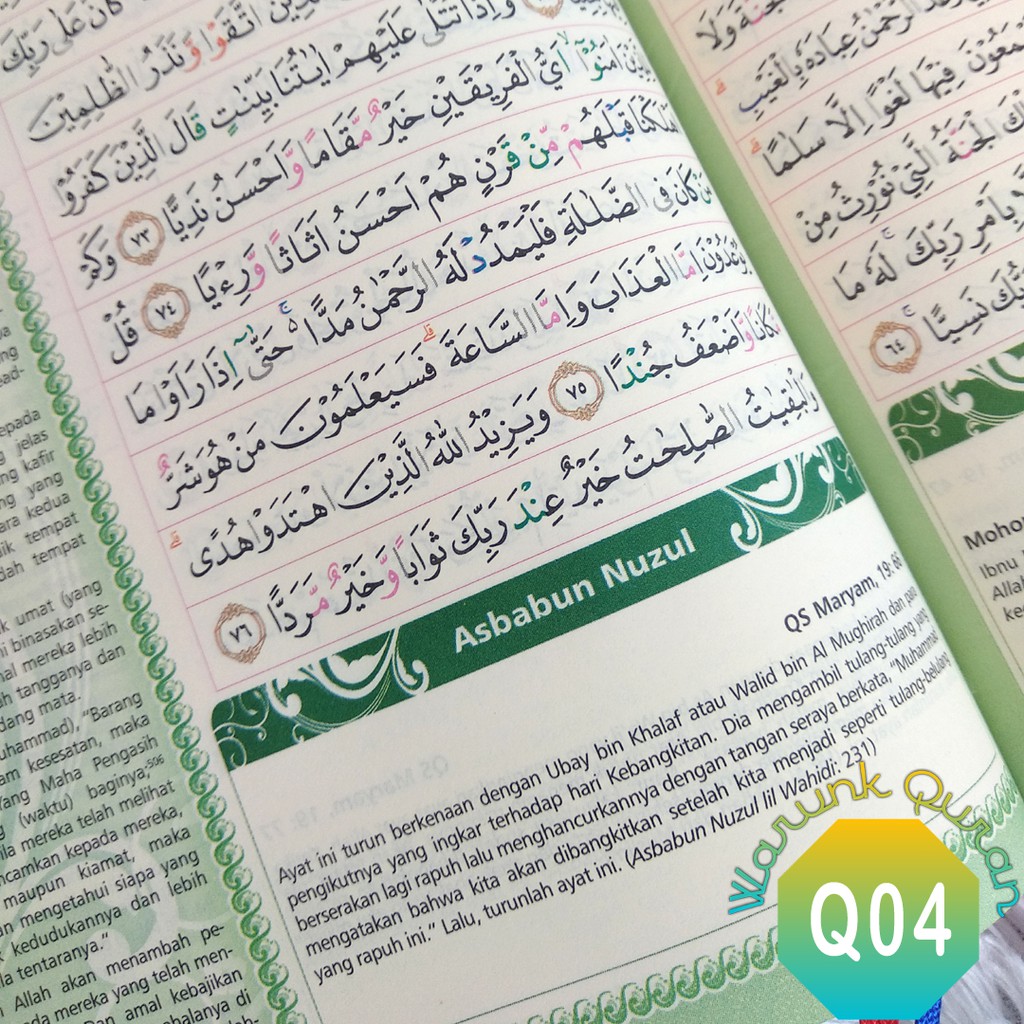 وَّنَذَرُ الظّٰلِمِيْنَ
وَاِذَا تُتْلٰى عَلَيْهِمْ اٰيٰتُنَا بَيِّنٰتٍ قَالَ الَّذِيْنَ كَفَرُوْا
اٰمَنُوْٓا اَيُّ الْفَرِيْقَيْنِ خَيْرٌ مَّقَامًا وَّاَحْسَنُ نَدِيًّا ٧٣ وَكَمْ
قَبْلَهُمْ مِّنْ قَرْنٍ هُمْ اَحْسَنُ اَثَاثًا وَّرِءْيًا ٧٤ قُلْ
مَنْ كَانَ فِى الضَّلٰلَةِ فَلْيَمْدُدْ لَهُ الرَّحْمٰنُ مَدًّا ەۚ حَتّٰىٓ اِذَا رَاَوْا مَا
يُوْعَدُوْنَ اِمَّا الْعَذَابَ وَاِمَّا السَّاعَةَ ۗفَسَيَعْلَمُوْنَ مَنْ هُوَ شَرٌّ
مَّكَانًا وَّاَضْعَفُ جُنْدًا ٧٥ وَيَزِيْدُ اللّٰهُ الَّذِيْنَ اهْتَدَوْا هُدًىۗ
وَالْبٰقِيٰتُ الصّٰلِحٰتُ خَيْرٌ عِنْدَ رَبِّكَ ثَوَابًا وَّخَيْرٌ مَّرَدًّا ٧٦
Asbabun Nuzul
QS Maryam, 19: 66
Ayat ini turun berkenaan dengan Ubay bin Khalaf atau Walid bin Al Mughirah dan para
pengikutnya yang ingkar terhadap hari Kebangkitan. Dia mengambil tulang-tulang yang
berserakan lagi rapuh lalu menghancurkannya dengan tangan seraya berkata, "Muhammad
mengatakan bahwa kita akan dibangkitkan setelah kita menjadi seperti tulang-belulang
yang rapuh ini." Lalu, turunlah ayat ini. (Asbabun Nuzul lil Wahidi: 231)
epada
jelas
kafir
yang
kedua
tempat
tempat
umat (yang
binasakan se-
mereka lebih
tangganya dan
mata.
"Barang
kesesatan, maka
Yang Maha Pengasih
(waktu) baginya;506
mereka telah melihat
kepada mereka,
maupun kiamat, maka
mengetahui siapa yang
kedudukannya dan lebih
tentaranya."
Allah akan menambah pe-
mereka yang telah men-
Dan amal kebajikan
الرَّحْمٰنُ عِبَادَهٗ بِالْغَيْبِۗ
فِيْهَا لَغْوًا اِلَّا سَلٰمًاۗ
الْجَنَّةُ الَّتِيْ نُوْرِثُ مِنْ
بِاَمْرِ رَبِّكَۚ لَهٗ مَا
نَسِيًّاۚ ٦٤
Ibnu
Warunk Quran
Q04